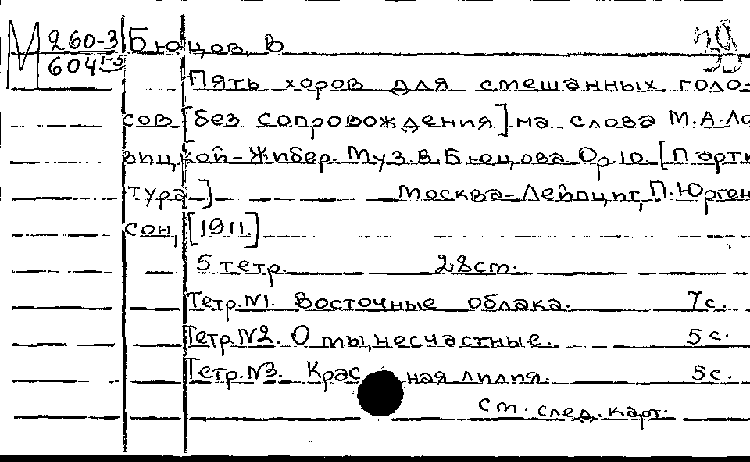 М 260-3 Бюцов, В
604
Пять хоров для смешанных голо-
сов [без сопровождения] на слова М.А. Ло
виц,кой-Жибер. Муз. В. Бюцова Ор. 10. [Парти
тура] Москва-Лейпциг, П. Юрген
сон, [1911]
5 тетр. 28 ст.
Тетр. №1. Восточные облака. 7с.
Тетр. №2. О ты, несчастные. 5с.
Тетр. №3. Красная лилия. 5с.
См. след. карт.